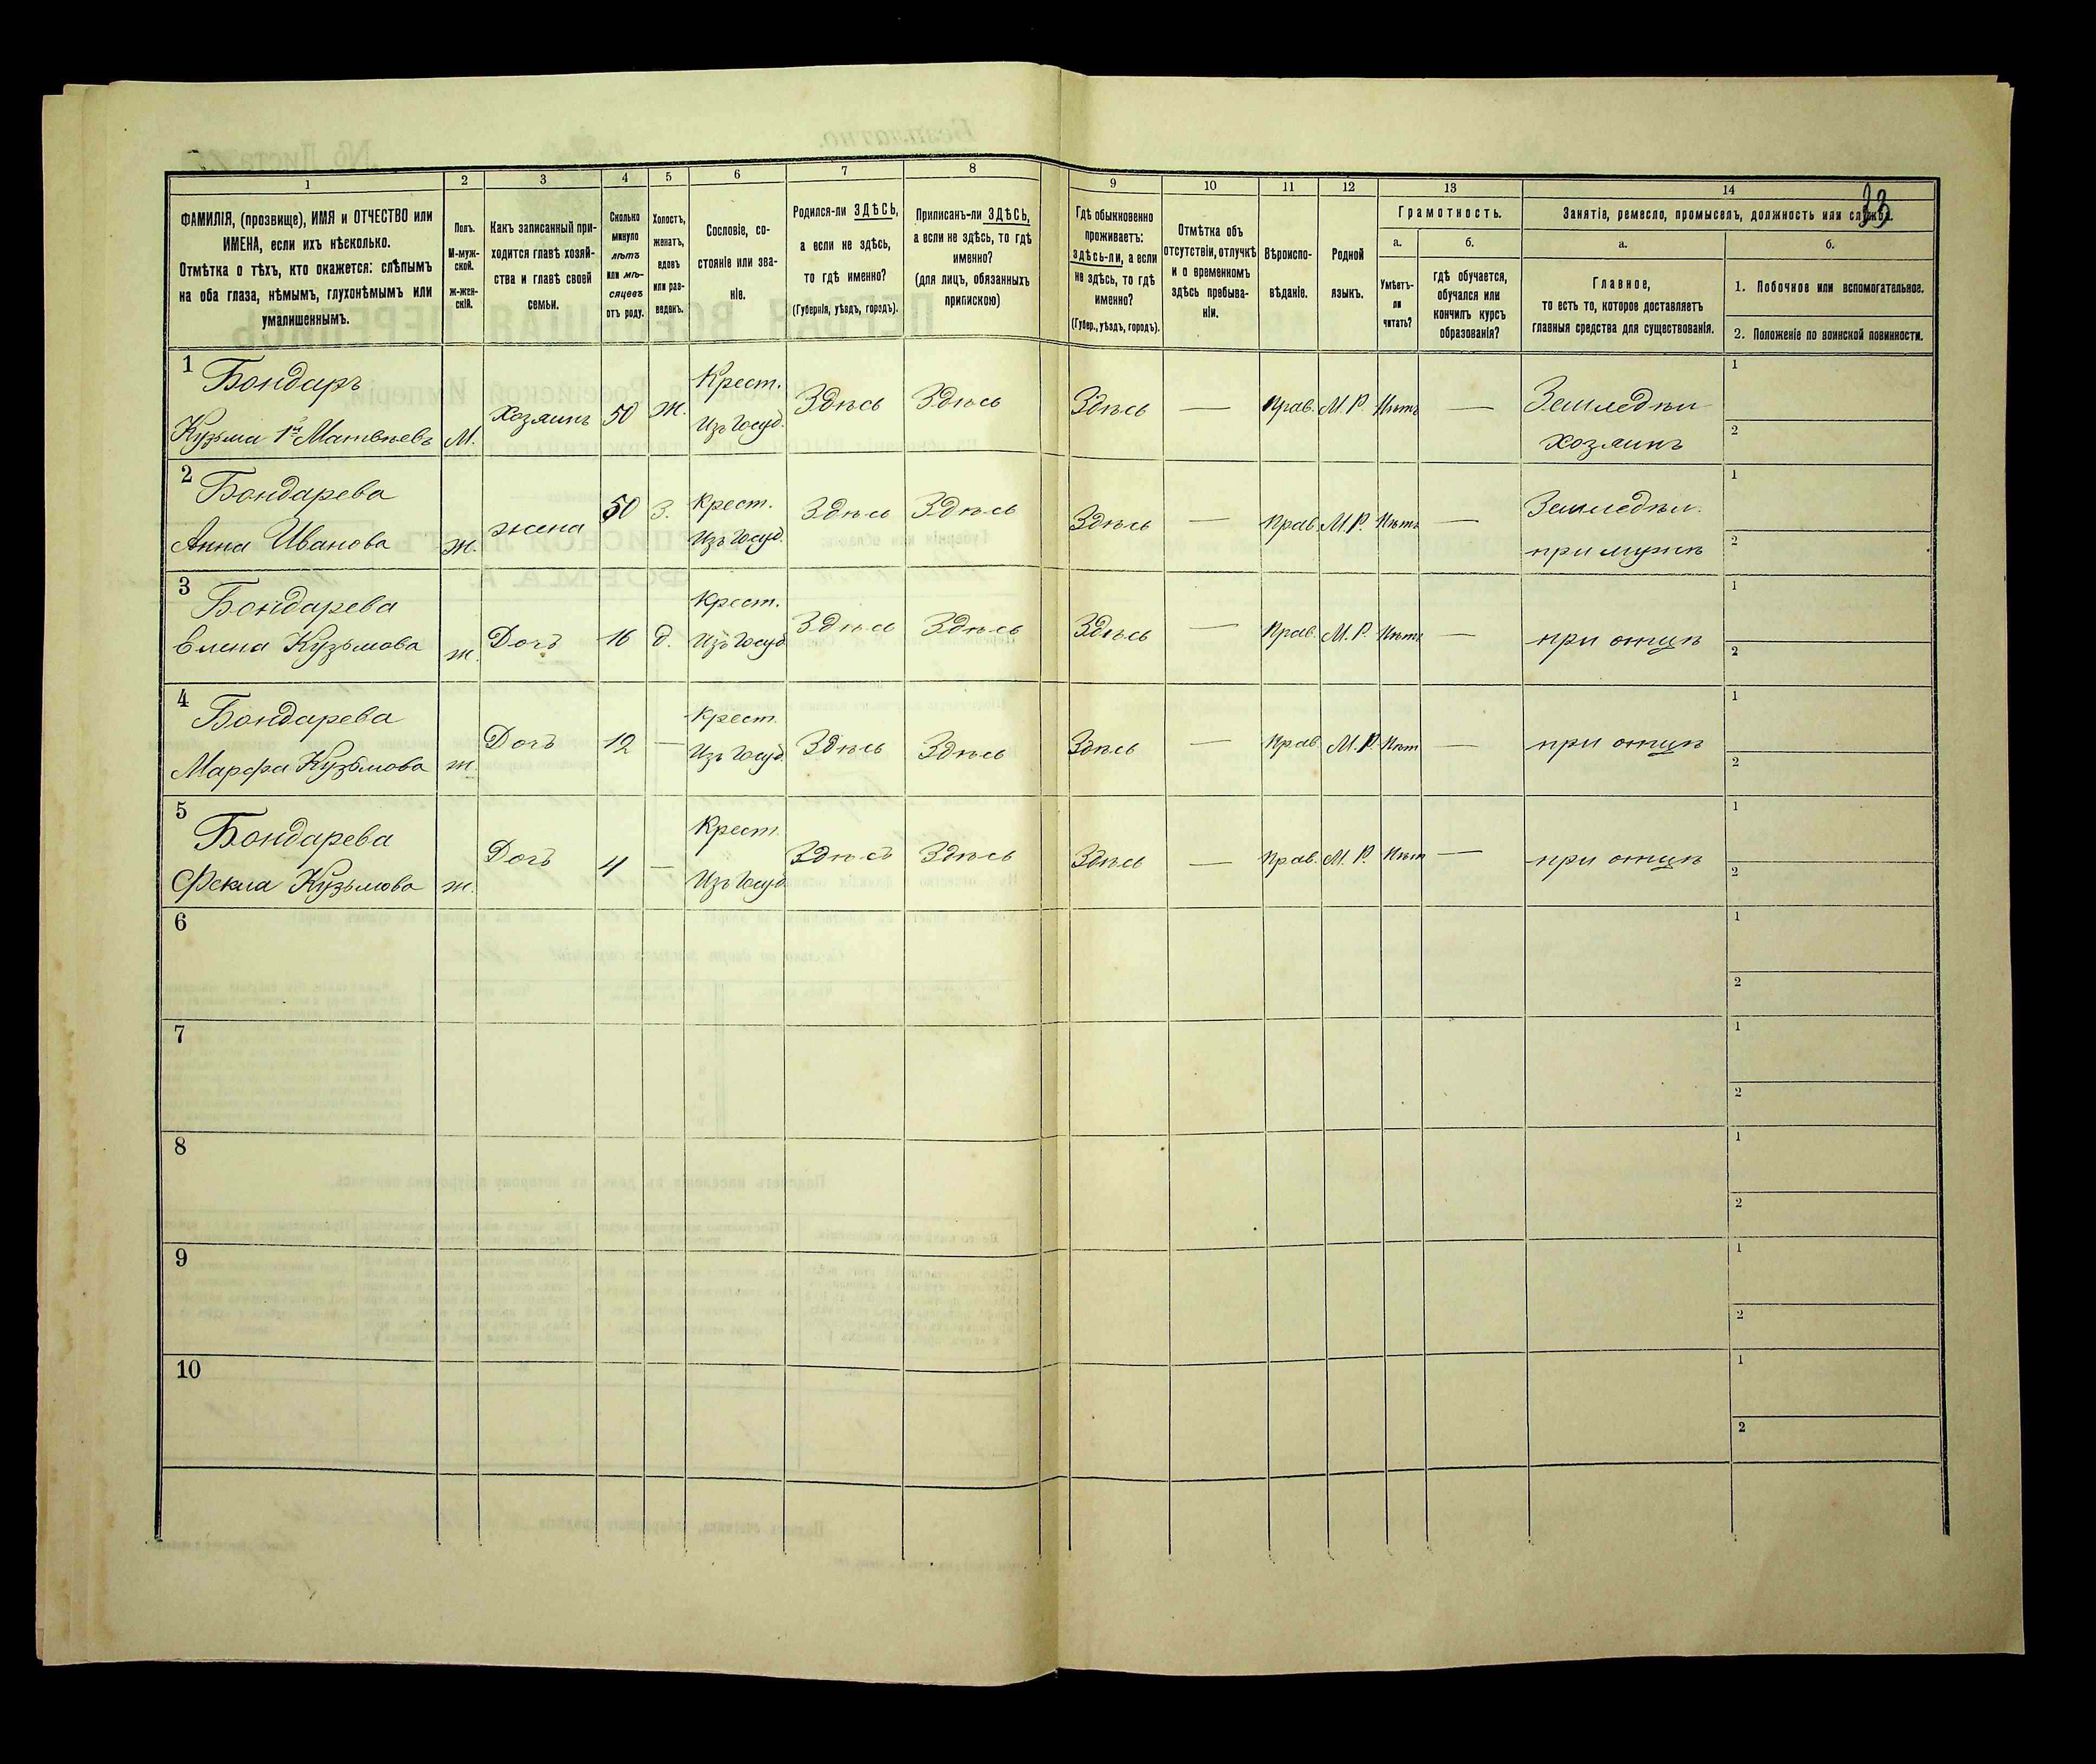 33
1 2 3 4 5 6 7 8 9 10 11 12 13 14
ФАМИЛІЯ, (прозвище), ИМЯ и ОТЧЕСТВО или
ИМЕНА, если ихъ нѣсколько.
Отмѣтка о тѣхъ, кто окажется: слѣпымъ
на оба глаза, нѣмымъ, глухонѣмымъ или
умалишеннымъ.
Полъ.
М-муж-
ской.
Ж-жен-
скій.
Какъ записанный при-
ходится главѣ хозяй-
ства и главѣ своей
семьи.
Сколько
минуло
лѣтъ
или мѣ-
сяцевъ
отъ роду.
Холостъ,
женатъ,
вдовъ
или раз-
веденъ.
Сословіе, со-
стояніе или зва-
ніе.
Родился-ли ЗДѢСЬ,
а если не здѣсь,
то гдѣ именно?
(Губернія, уѣздъ, городъ).
Приписанъ-ли ЗДѢСЬ,
а если не здѣсь, то гдѣ
именно?
(для лицъ, обязанныхъ
припискою)
Гдѣ обыкновенно
проживаетъ:
здѣсь-ли, а если
не здѣсь, то гдѣ
именно?
(Губер., уѣздъ, городъ).
Отмѣтка объ
отсутствіи, отлучкѣ
и о временномъ
здѣсь пребыва-
ніи.
Вѣроиспо-
вѣданіе.
Родной
языкъ.
Грамотность.
а.
Умѣетъ-
ли
читать?
б.
гдѣ обучается,
обучался или
кончилъ курсъ
образованія?
Занятіе, ремесло, промыселъ, должность или служба.
а.
Главное,
то есть то, которое доставляетъ
главныя средства для существованія.
б.
1. Побочное или вспомогательное.
2. Положеніе по воинской повинности.
1 Бондаръ Крест. Здѣсь Здѣсь Здѣсь — Прав. М. Р. Нѣтъ — Земледѣл 1
Кузьма 1й Матвѣевъ М. Хозяинъ 50 Ж. Изъ Госуд. хозяинъ 2
2 Бондарева 50 З. Крест. Здѣсь Здѣсь Здѣсь — Прав. М. Р. Нѣтъ — Земледѣл. 1
Анна Иванова Ж. жена Изъ Госуд. при мужѣ 2
3 Бондарева Крест. Здѣсь Здѣсь Здѣсь — Прав. М. Р. Нѣтъ — 1
Елена Кузьмова Ж. Дочь 16 д. Изъ Госуд при отцѣ 2
4 Бондарева Крест. Здѣсь Здѣсь Здѣсь — Прав. М. Р. Нѣт — при отцѣ 1
Марфа Кузьмова Ж. Дочь 12 — Изъ Госуд. 2
5 Бондарева Крест. Здѣсь Здѣсь Здѣсь — Прав. М. Р. Нѣт — при отцѣ 1
Фекла Кузьмова Ж. Дочь 4 — Изъ Госуд 2
6 1
2
7 1
2
8 1
2
9 1
2
10 1
2